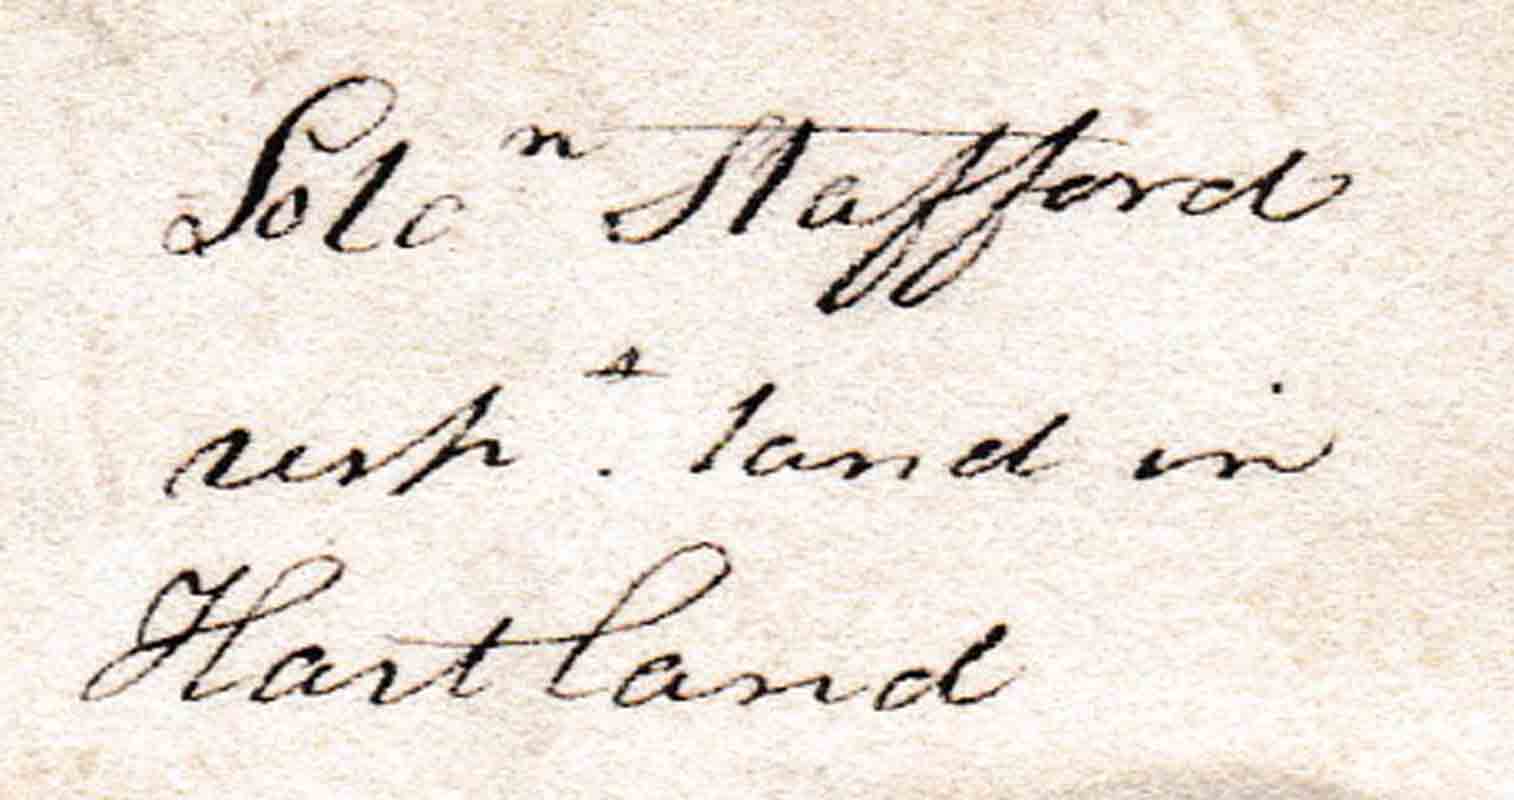 Solo^n Stafford
resp^s. land in
Hartland